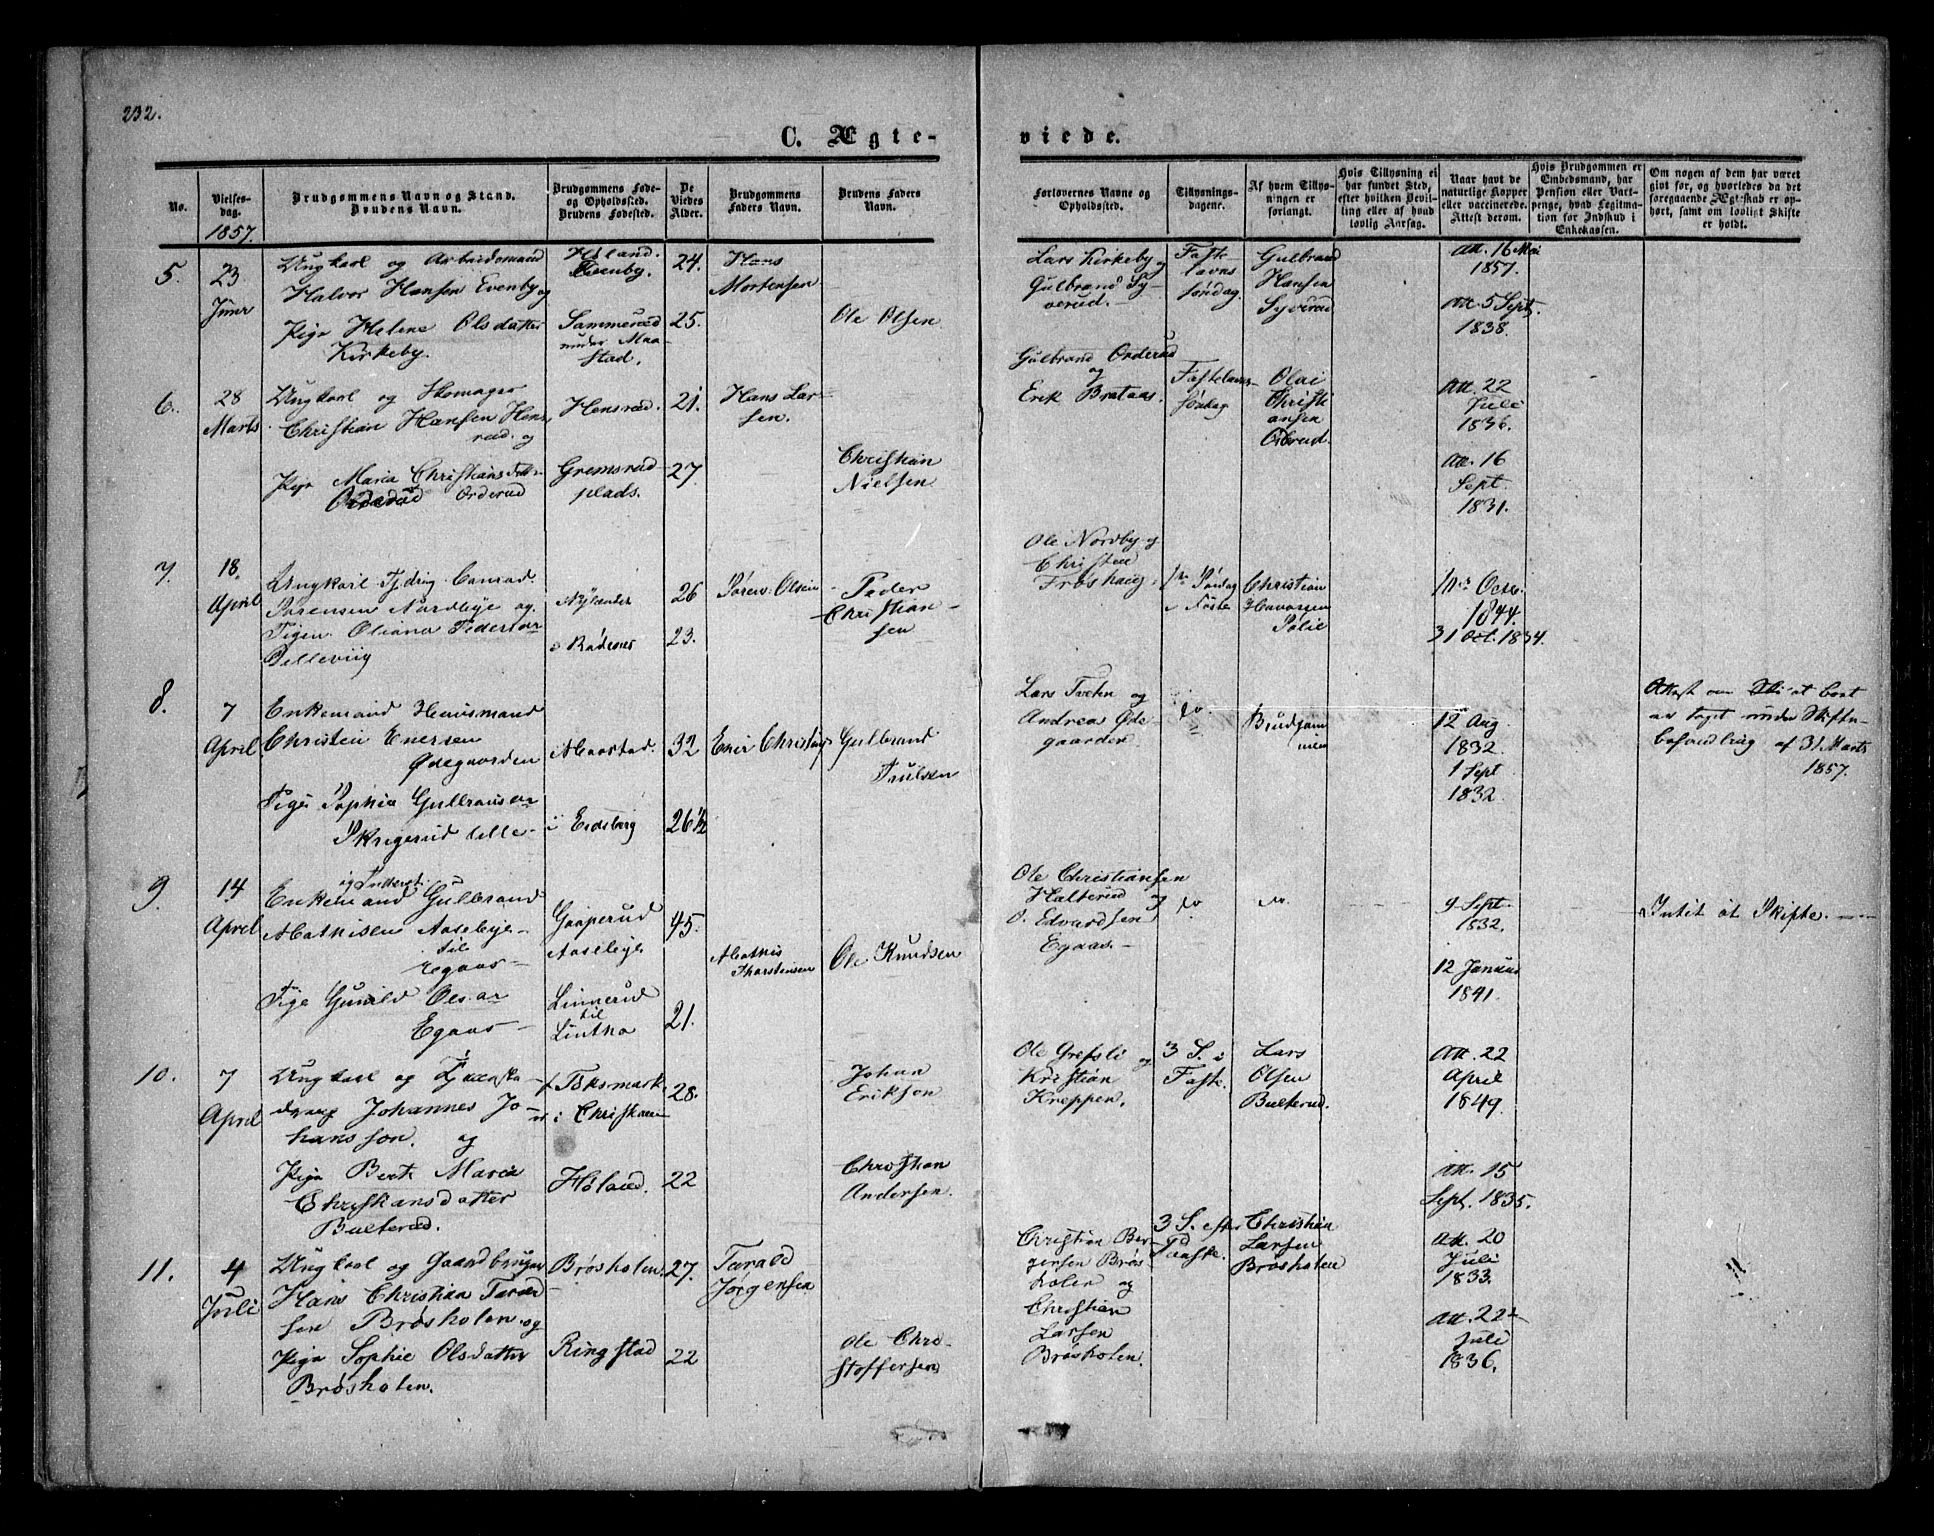 232.
C. Ægte-
viede.
No.
Vielses-
dag.
1857.
Brudgommens Navn og Stand.
Brudens Navn.
Brudgommens Føde-
og Opholdssted.
Brudens Fødested.
De
Viedes
Alder.
Brudgommens
Faders Navn.
Brudens Faders
Navn.
Forlovernes Navne og
Opholdssted.
Tillysnings-
dagene.
Af hvem Tillys-
ningen er
forlangt.
Hvis Tillysning ei
har fundet Sted,
efter hvilken Bevil-
ling eller af hvad
lovlig Aarsag.
Naar havt de
naturlige Kopper
eller vaccinerede.
Attest derom.
Hvis Brudgommen er
Embedsmand, har
Pension eller Vart-
penge, hvad Legitima-
tion for Indskud i
Enkekassen.
Om nogen af dem har været
gift før, og hvorledes da det
foregaaende Ægteskab er op-
hørt, samt om lovligt Skifte
er holdt.
5.
23
Juner
Ungkarl og Arbeidsmand
Halvor Hansen Evenby og
Pige Helene Olsdatter
Kirkeby.
Høland.
Evenby.
Sammerød
under Maa-
stad.
24.
25.
Hans
Mortensen
Ole Olsen
Lars Kirkeby og
Gulbrand Sy-
verud.
Faste-
lavns
søndag.
Gulbrand
Hansen
Syverud
Att. 16 Mai
1857.
Att. 5 Sept.
1838.
6.
28
Marts.
Ungkarl og Skomager
Christian Hansen Hens-
rød. og
Pige Maria Christians datt-
Orderud
Hensrød.
Gremsrød
plads.
21.
27.
Hans Lar-
sen.
Christian
Nielsen
Gulbrand Orderud
og
Erik Brataas.
Fastelavns-
søndag
Olai
Christi
ansen
Orderud.
Att. 22
Juli
1836.
Att. 16
Sept.
1831.
7.
18.
April
Ungkarl Conrad
Sørensen Nordbye og
Pigen Oliana Peders
Nylænder
Rødenes
26
23.
Søren Olsen
Peder
Christian-
sen
Ole Nordby og
Christen
Frøshaug
Søndag
i Faste
Christian
1844.
31 Oct. 1834.
8.
7
April
Enkemand Huusmand
Christen Enersen
Ødegaarden
Pige Sophia Gulbrands
Skrigerud lille
Maastad.
i Eidsberg
32
26½
Ener Christens
Gulbrand
Paulsen
Lars Tveten og
Andreas Øde-
gaarden
do
Brudgom
men
12 Aug
1832.
1 Sept
1832.
Attest om at boet
er taget under Skifte-
behandling af 31 Marts
1857.
9.
14
April
Enkemand Gulbrand
Mathisen Aaseby-
til
Egaas
Pige Gunild Ols
Egaas
Gaaperud
Aaseby
Linnerud
til
Lintho
45.
21.
Mathis
Thorstensen
Ole Knudsen
Ole Christiansen
Halterud og
O. Edvardsen
Egaas
do
do.
9 Sept
1832.
12 Januar
1841.
Intet at Skifte.
10.
7
April
Ungkarl og
Johannes Jo-
hansson. og
Pige Berte Maria
Christiansdatter
Bulterud.
Høland.
28.
22
Johan
Erikson
Christian
Andersen.
Ole Grefsli og
Kristian
Kreppen.
3 S. i
Faste.
Lars
Olsen
Bulterud.
Att. 22
April
1849.
Att. 15
Sept. 1835.
11.
4
Juli
Ungkarl og Gaardbruger
Hans Christian Tarald
sen Brøsholen og
Pige Sophie Olsdatter
Brøsholen.
Brøsholen.
Ringstad
27.
22
Tarald
Jørgensen
Ole Chri-
stoffersen
Christian Bør-
gersen Brøs-
holen og
Christian
Larsen
Brøsholen.
3 S. efter
Paaske.
Christian
Larsen
Brøsholen
Att. 20
Juli
1833.
Att. 22
Juli
1836.